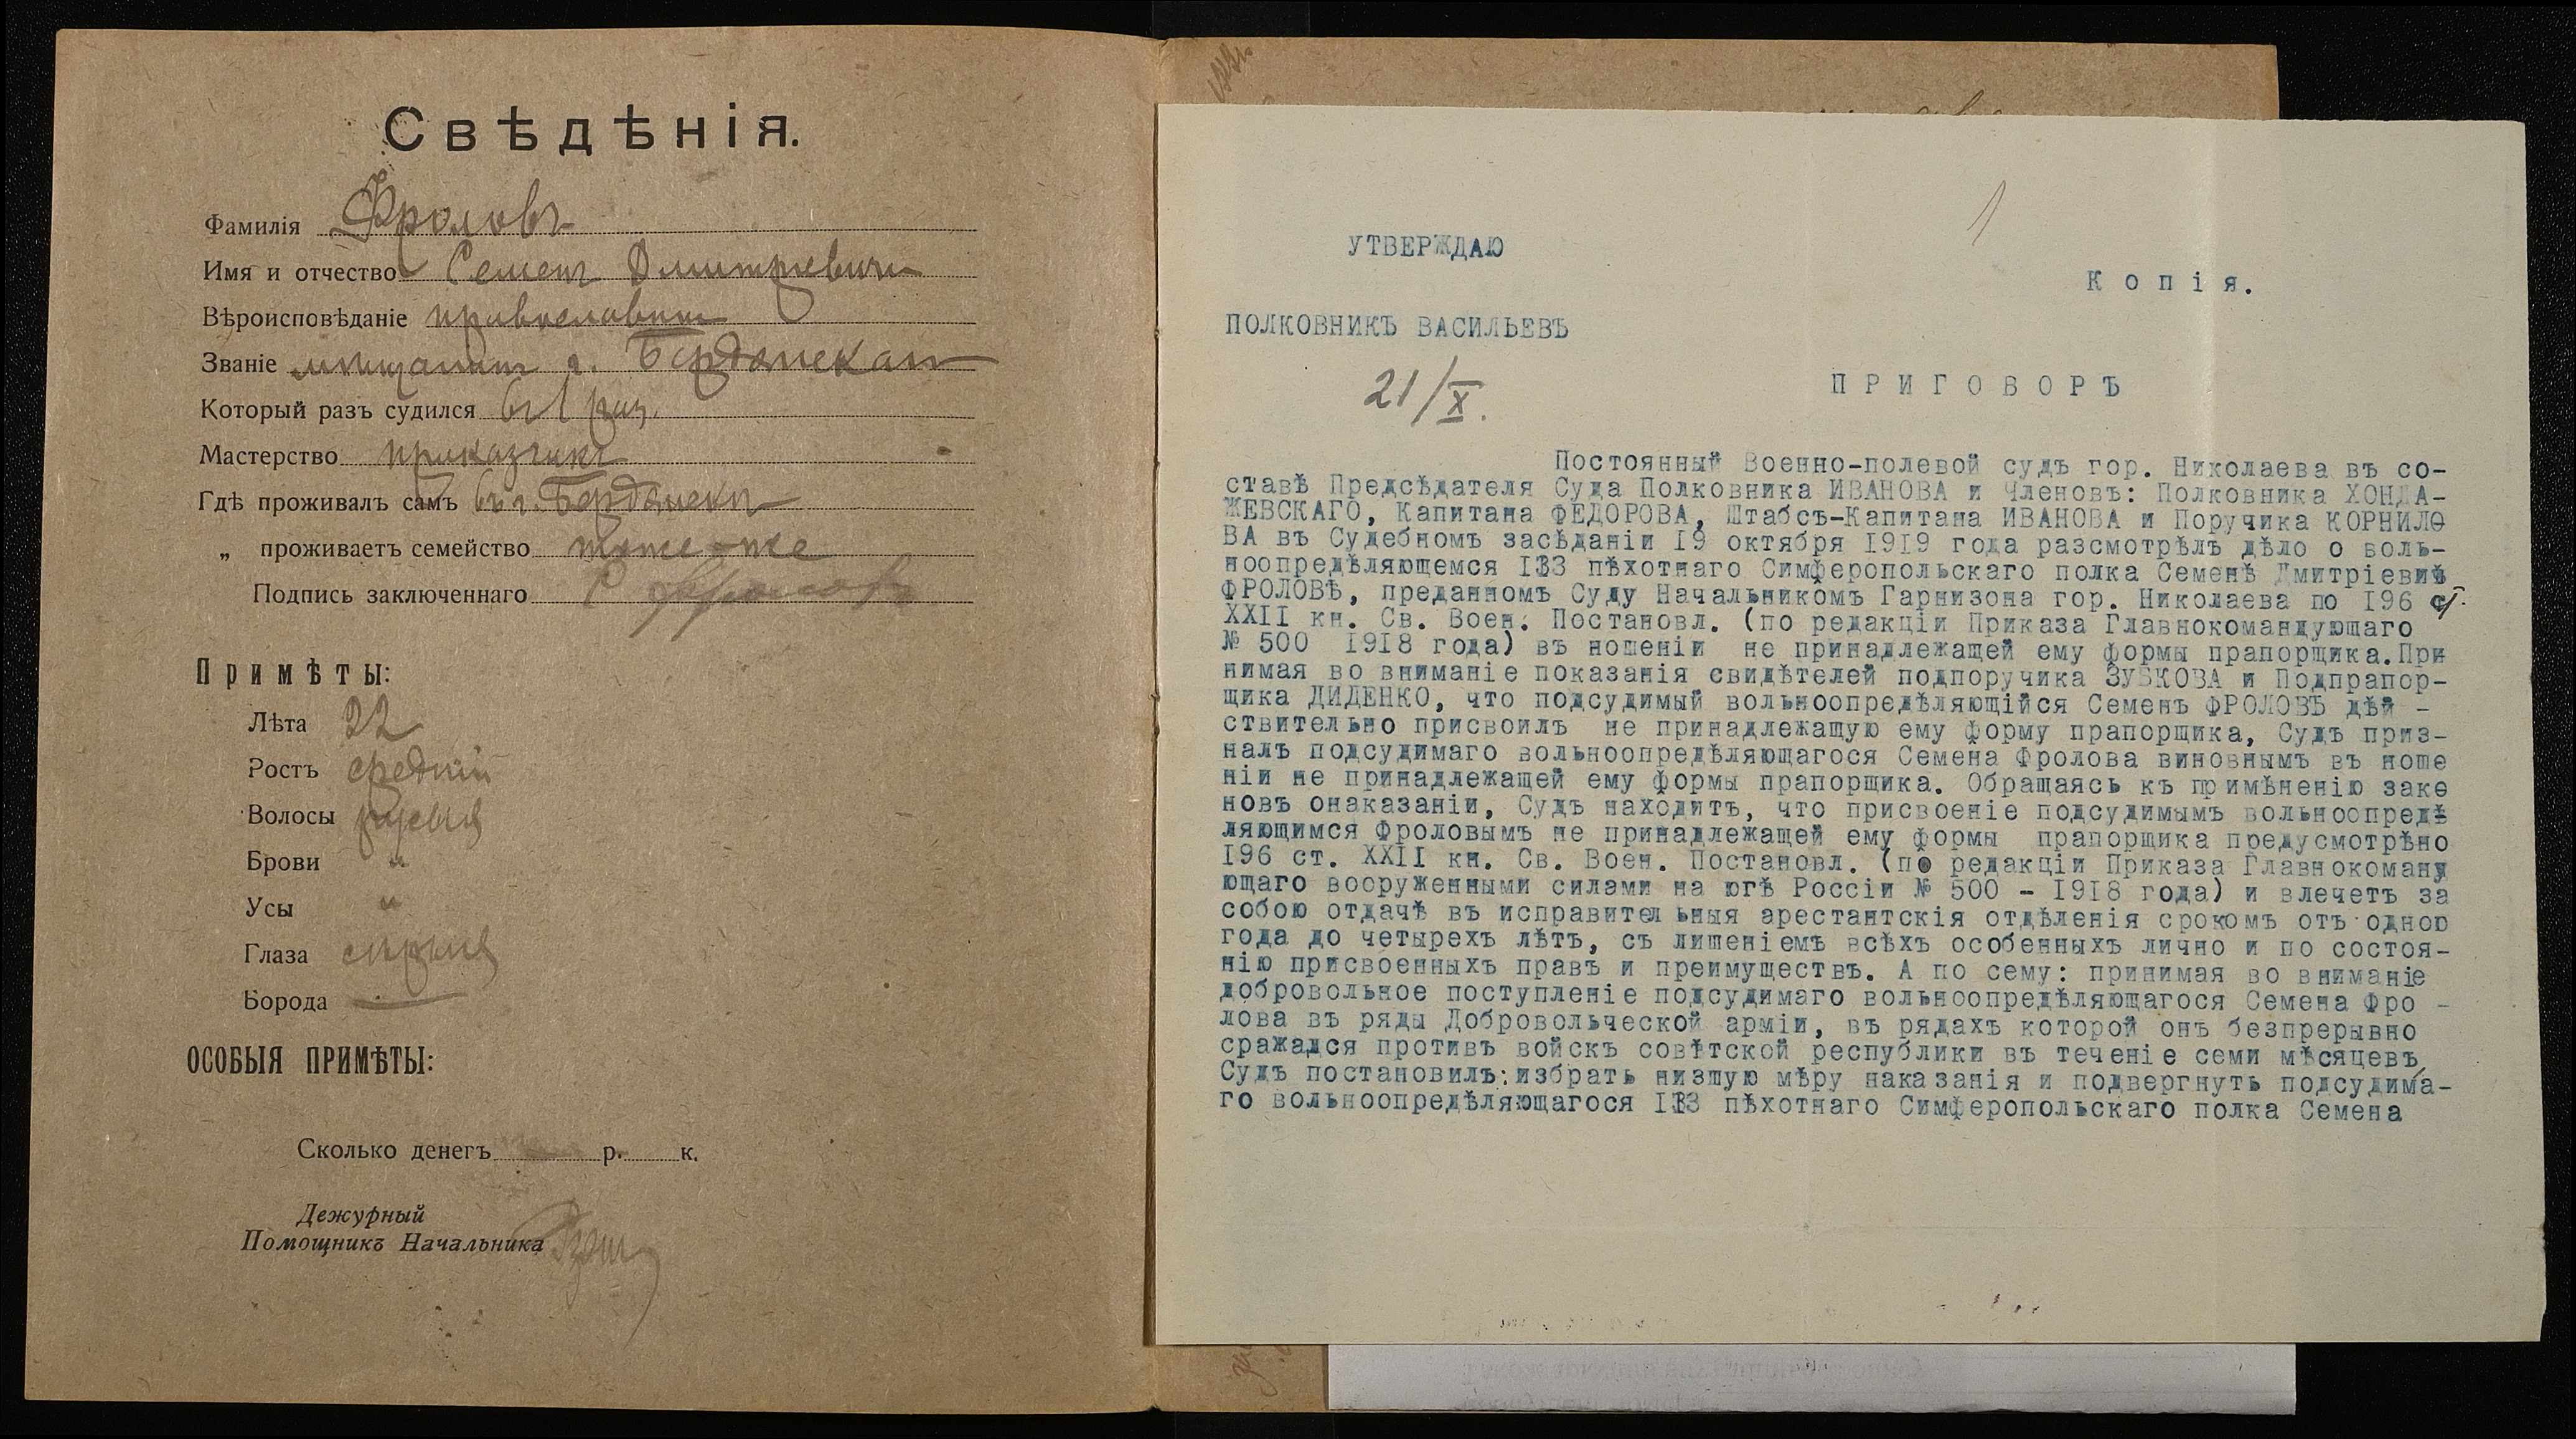 Свѣдѣнія.
Фамилія Фроловъ
Имя и отчество Семенъ Дмитріевичъ
Вѣроисповѣданіе православный
Званіе мѣщанинъ г. Бердянска
Который разъ судился въ 1 раз.
Мастерство приказчикъ
Гдѣ проживалъ самъ въ г. Бердянскѣ
„ проживаетъ семейство тамъ-же
Подпись заключеннаго С Фролов
Примѣты:
Лѣта 22
Ростъ средній
Волосы русые
Брови "
Усы "
Глаза сѣрые
Борода —
ОСОБЫЯ ПРИМѢТЫ:
Сколько денегъ р. к.
Дежурный
Помощникъ Начальника
1
УТВЕРЖДАЮ
Копія.
ПОЛКОВНИКЪ ВАСИЛЬЕВЪ
21/X.
ПРИГОВОРЪ
Постоянный Военно-полевой судъ гор. Николаева въ со-
ставѣ Предсѣдателя Суда Полковника ИВАНОВА и Членовъ: Полковника ХОНДА-
ЖЕВСКАГО, Капитана ФЕДОРОВА, Штабсъ-Капитана ИВАНОВА и Поручика КОРНИЛО
ВА въ Судебномъ засѣданіи I9 октября I9I9 года разсмотрѣлъ дѣло о воль-
ноопредѣляющемся I33 пѣхотнаго Симферопольскаго полка Семенѣ Дмитріевичѣ
ФРОЛОВѢ, преданномъ Суду Начальникомъ Гарнизона гор. Николаева по I96 ст.
XXII кн. Св. Воен. Постановл. (по редакціи Приказа Главнокомандующаго
№ 500 I9I8 года) въ ношеніи не принадлежащей ему формы прапорщика.При
нимая во вниманіе показанія свидѣтелей подпоручика ЗУБКОВА и Подпрапор-
щика ДИДЕНКО, что подсудимый вольноопредѣляющійся Семенъ ФРОЛОВЪ дѣй -
ствительно присвоилъ не принадлежащую ему форму прапорщика, Судъ приз-
налъ подсудимаго вольноопредѣляющагося Семена Фролова виновнымъ въ ноше
ніи не принадлежащей ему формы прапорщика. Обращаясь къ примѣненію зако
новъ онаказаніи, Судъ находитъ, что присвоеніе подсудимымъ вольноопредѣ
ляющимся Фроловымъ не принадлежащей ему формы прапорщика предусмотрѣно
I96 ст. XXII кн. Св. Воен. Постановл. (по редакціи Приказа Главнокоманд
ующаго вооруженными силами на югѣ Россіи № 500 - I9I8 года) и влечетъ за
собою отдачѣ въ исправительныя арестантскія отдѣленія срокомъ отъ одного
года до четырехъ лѣтъ, съ лишеніемъ всѣхъ особенныхъ лично и по состоя-
нію присвоенныхъ правъ и преимуществъ. А по сему: принимая во вниманіе
добровольное поступленіе подсудимаго вольноопредѣляющагося Семена Фро -
лова въ ряды Добровольческой арміи, въ рядахъ которой онъ безпрерывно
сражался противъ войскъ совѣтской республики въ теченіе семи мѣсяцевъ,
Судъ постановилъ:избрать низшую мѣру наказанія и подвергнуть подсудима-
го вольноопредѣляющагося I33 пѣхотнаго Симферопольскаго полка Семена